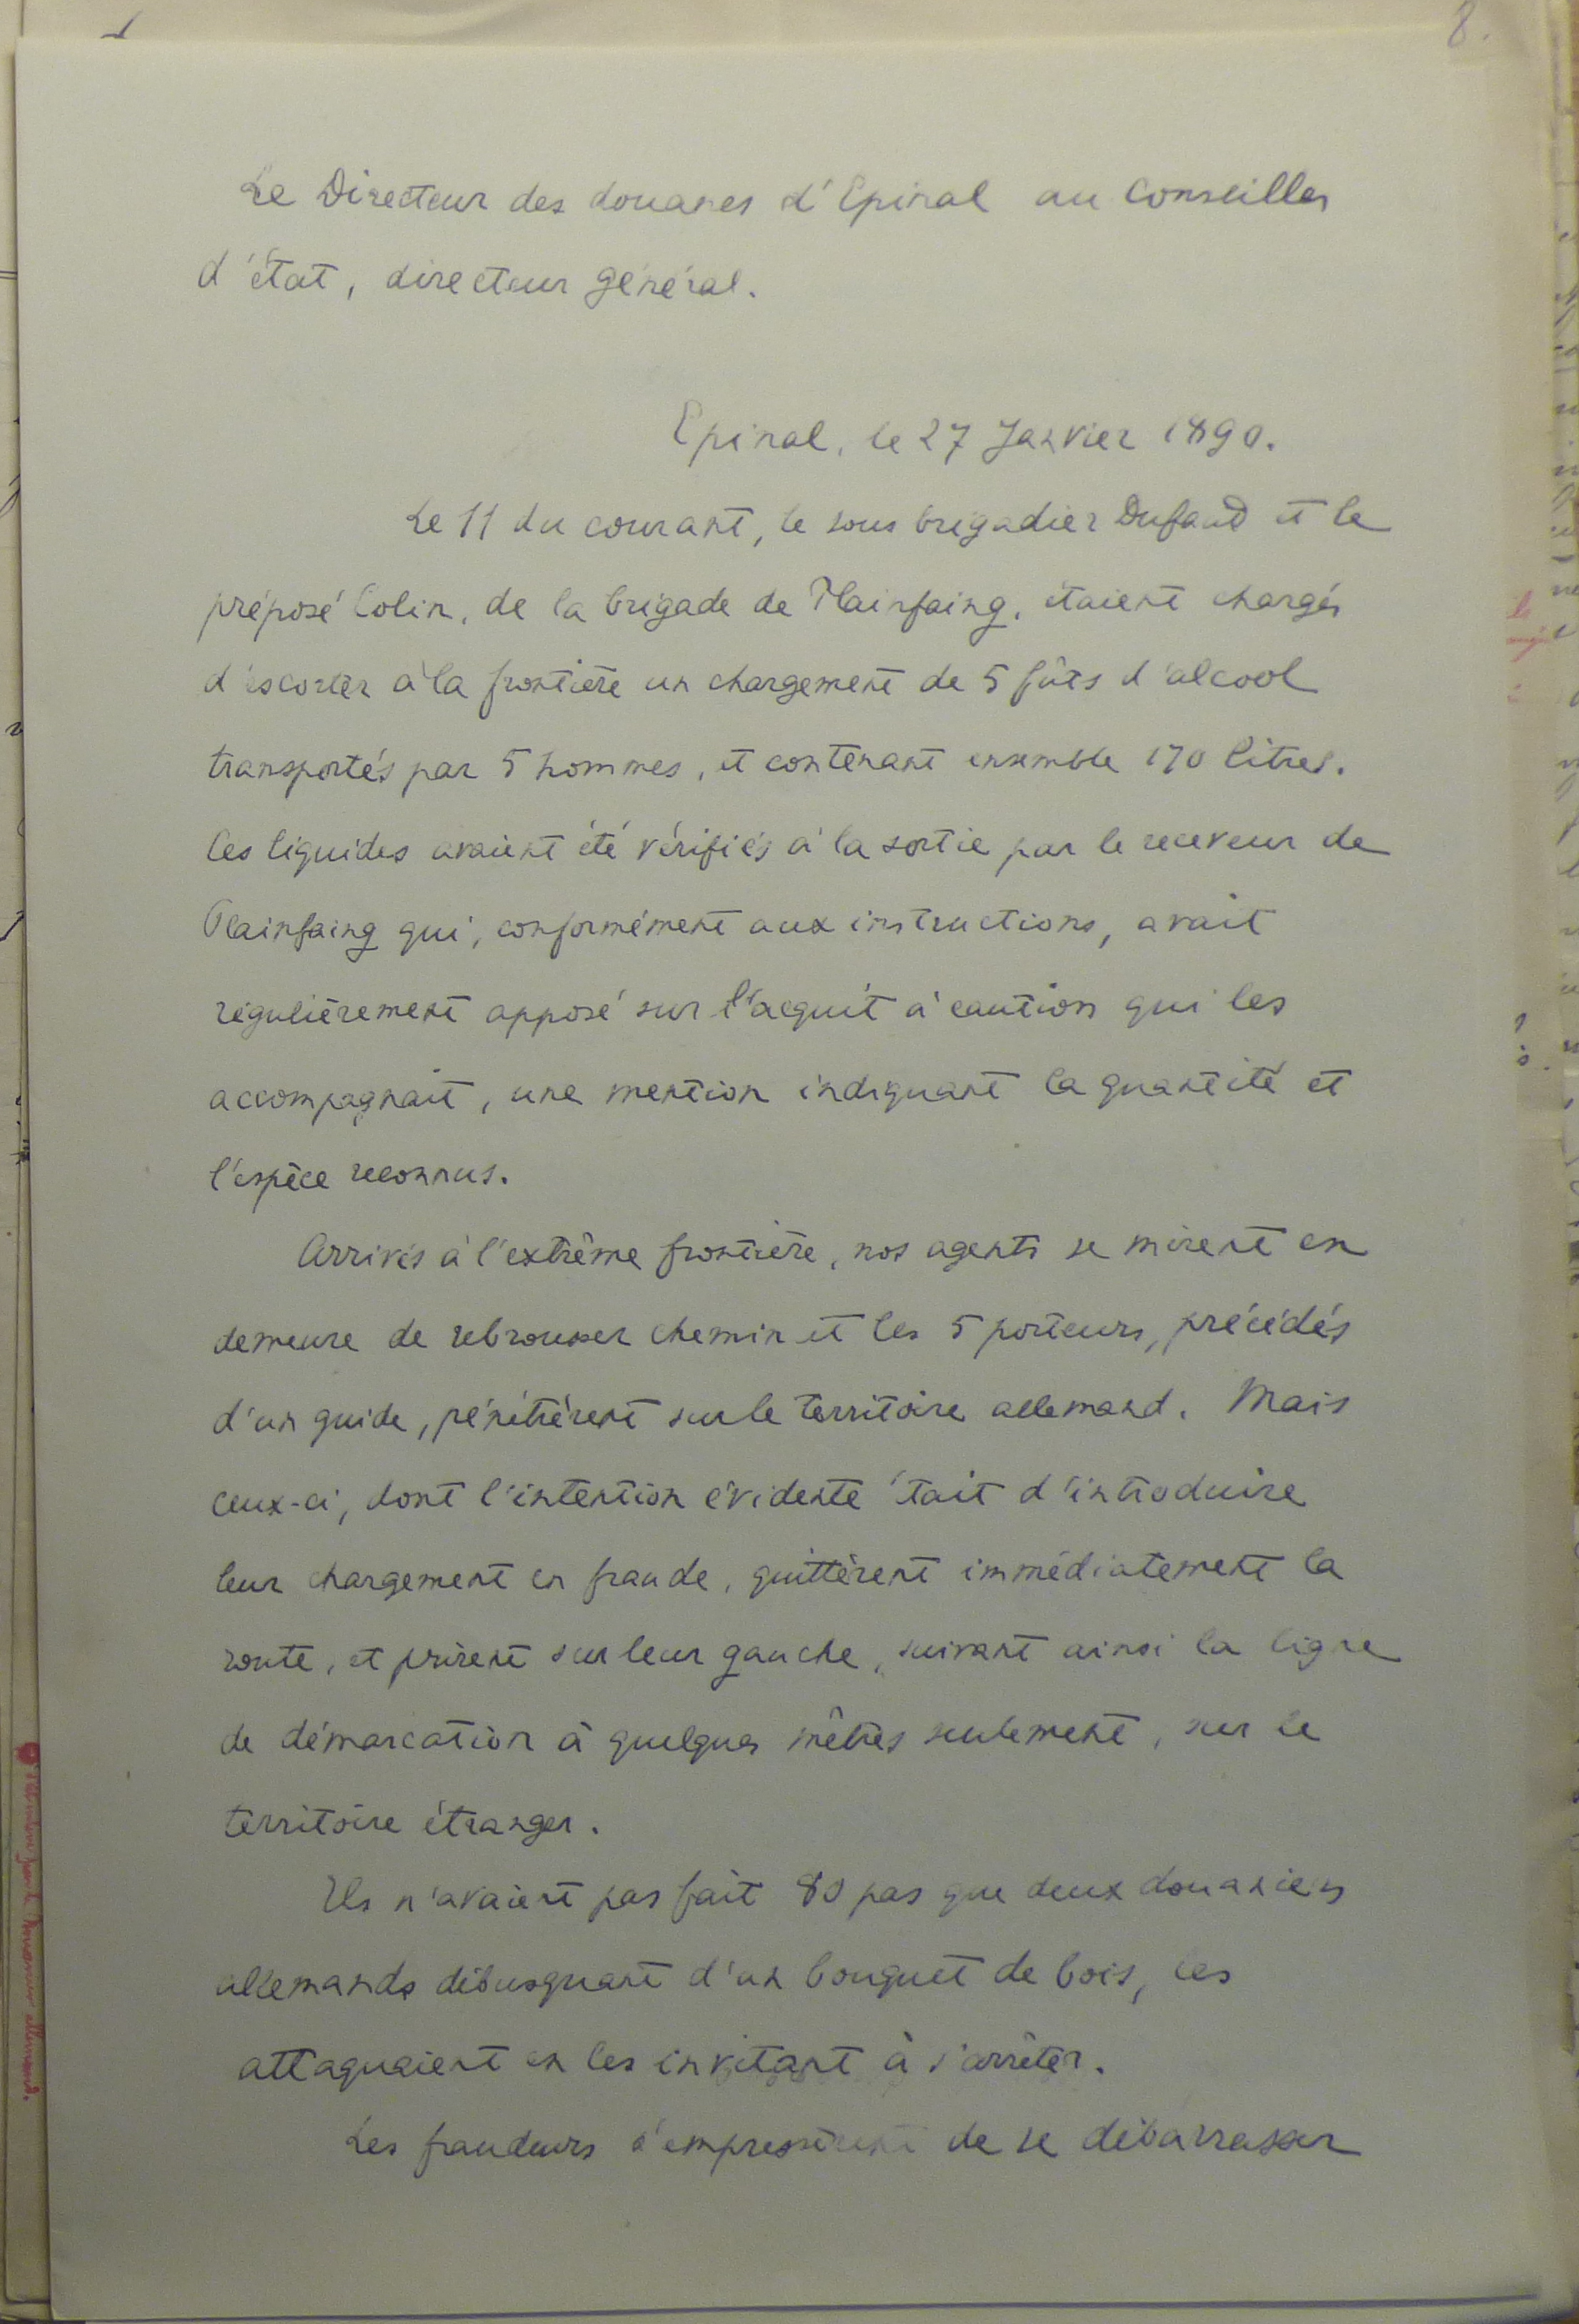 8.
Le Directeur des douanes d'Epinal au Conseiller
d'état, directeur général.
Epinal, le 27 Janvier 1890.
Le 11 du courant, le sous brigadier Dufaud et le
préposé Colin, de la brigade de Plainfaing, étaient chargés
d'escorter à la frontière un chargement de 5 fûts d'alcool
transportés par 5 hommes, et contenant ensemble 170 litres.
Ces liquides avaient été vérifiés à la sortie par le receveur de
Plainfaing qui, conformément aux instructions, avait
régulièrement apposé sur l'acquit à caution qui les
accompagnait, une mention indiquant la quantité et
l'espèce reconnus.
Arrivés à l'extrême frontière, nos agents se mirent en
demeure de rebrousser chemin et les 5 porteurs, précédés
d'un guide, pénétrèrent sur le territoire allemand. Mais
ceux-ci, dont l'intention évidente était d'introduire
leur chargement en fraude, quittèrent immédiatement la
route, et prirent sur leur gauche, suivant ainsi la ligne
de démarcation à quelques mètres seulement, sur le
territoire étranger.
Ils n'avaient pas fait 80 pas que deux douaniers
allemands débusquant d'un bouquet de bois, les
attaquaient en les invitant à s'arrêter.
Les fraudeurs s'empressèrent de se débarrasser